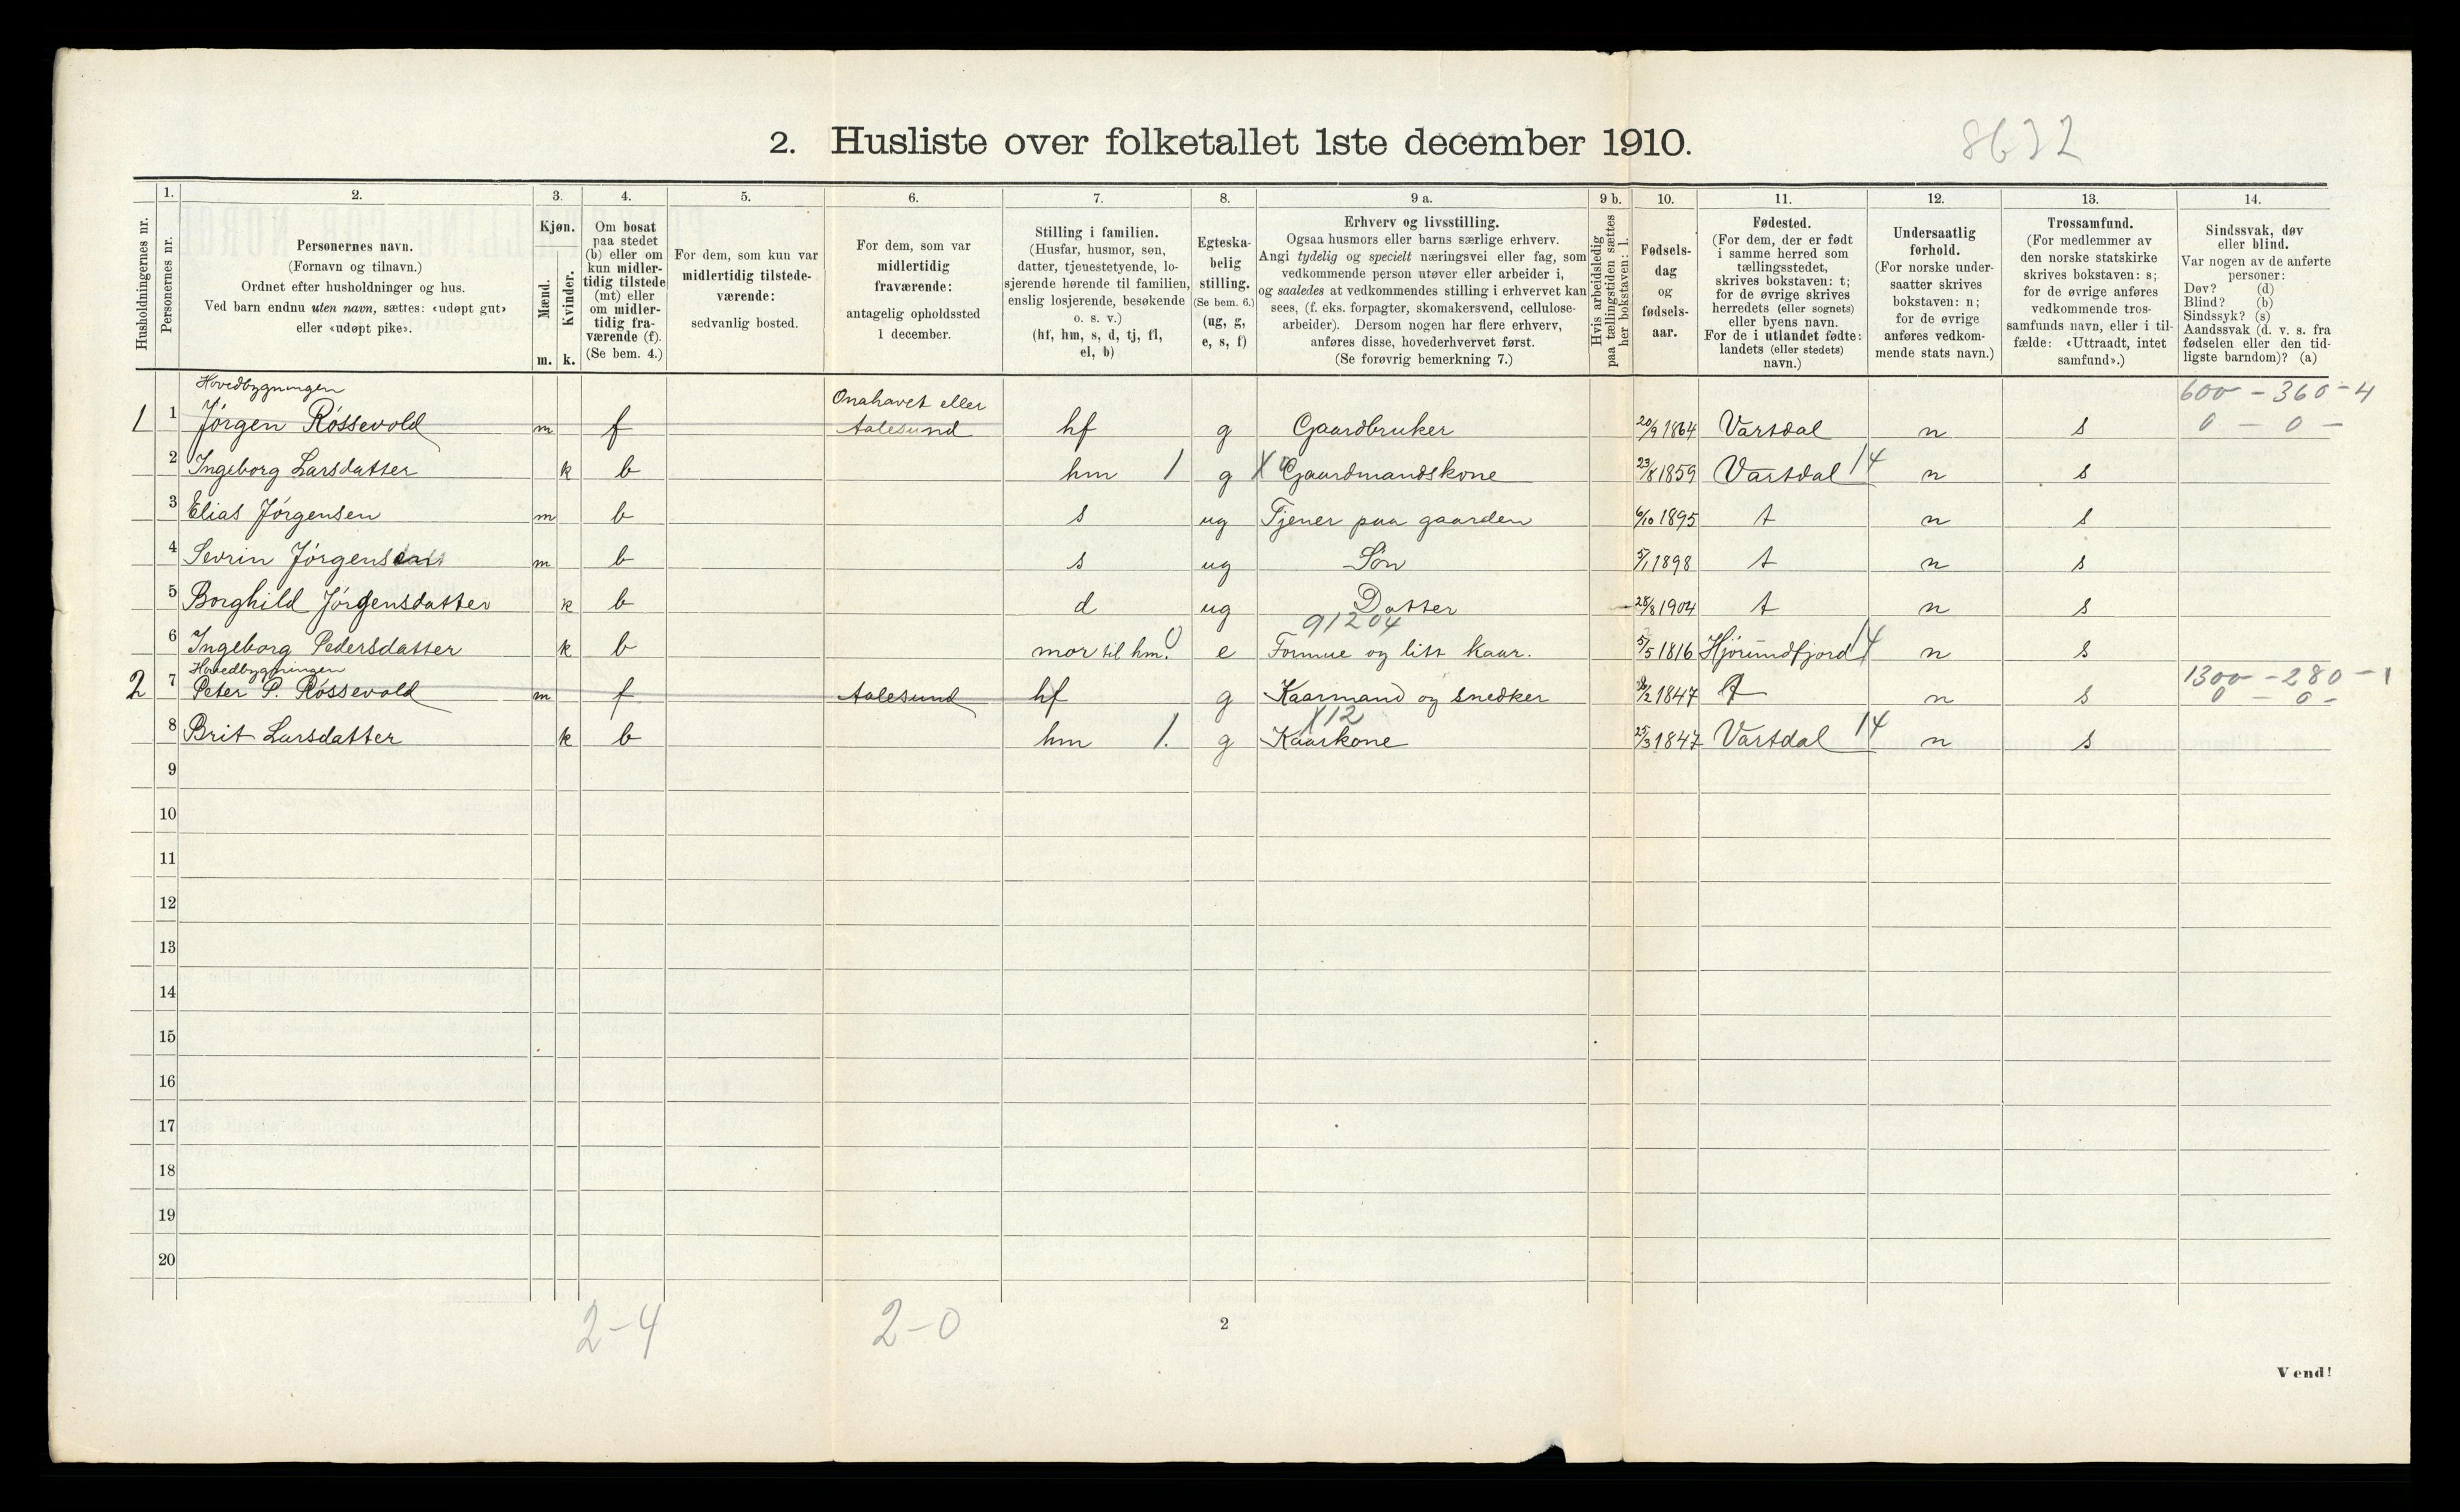 2. Husliste over folketallet 1ste december 1910.
8632
Husholdningernes nr.
1. Personernes nr.
2. Personernes navn.
(Fornavn og tilnavn.)
Ordnet efter husholdninger og hus.
Ved barn endnu uten navn, sættes: «udøpt gut»
eller «udøpt pike».
3. Kjøn.
Mænd. m.
Kvinder. k.
4. Om bosat
paa stedet
(b) eller om
kun midler-
tidig tilstede
(mt) eller
om midler-
tidig fra-
værende (f).
(Se bem. 4.)
5. For dem, som kun var
midlertidig tilstede-
værende:
sedvanlig bosted.
6. For dem, som var
midlertidig
fraværende:
antagelig opholdssted
1 december.
7. Stilling i familien.
(Husfar, husmor, søn,
datter, tjenestetyende, lo-
sjerende hørende til familien,
enslig losjerende, besøkende
o. s. v.)
(hf, hm, s, d, tj, fl,
el, b)
8. Egteska-
belig
stilling.
(Se bem. 6.)
(ug, g,
e, s, f)
9 a. Erhverv og livsstilling.
Ogsaa husmors eller barns særlige erhverv.
Angi tydelig og specielt næringsvei eller fag, som
vedkommende person utøver eller arbeider i,
og saaledes at vedkommendes stilling i erhvervet kan
sees, (f. eks. forpagter, skomakersvend, cellulose-
arbeider). Dersom nogen har flere erhverv,
anføres disse, hovederhvervet først.
(Se forøvrig bemerkning 7.)
9 b. Hvis arbeidsledig
paa tællingstiden sættes
her bokstaven: l.
10. Fødsels-
dag
og
fødsels-
aar.
11. Fødested.
(For dem, der er født
i samme herred som
tællingsstedet,
skrives bokstaven: t;
for de øvrige skrives
herredets (eller sognets)
eller byens navn.
For de i utlandet fødte:
landets (eller stedets)
navn.)
12. Undersaatlig
forhold.
(For norske under-
saatter skrives
bokstaven: n;
for de øvrige
anføres vedkom-
mende stats navn.)
13. Trossamfund.
(For medlemmer av
den norske statskirke
skrives bokstaven: s;
for de øvrige anføres
vedkommende tros-
samfunds navn, eller i til-
fælde: «Uttraadt, intet
samfund».)
14. Sindssvak, døv
eller blind.
Var nogen av de anførte
personer:
Døv? (d)
Blind? (b)
Sindssyk? (s)
Aandssvak (d. v. s. fra
fødselen eller den tid-
ligste barndom)? (a)
Hovedbygningen Onahavet eller 600 - 360 - 4
1 1 Jørgen Røssevold m f Aalesund hf g Gaardbruker 20/9 1864 Vartdal n s 0 - 0 -
2 Ingeborg Larsdatter k b hm 1 g X Gaardmandskone 23/8 1859 Vartdal 14 n s
3 Elias Jørgensen m b s ug Tjener paa gaarden 6/10 1895 t n s
4 Sevrin Jørgensen m b s ug Søn 5/1 1898 t n s
5 Borghild Jørgensdatter k b d ug Datter 28/8 1904 t n s
91204
6 Ingeborg Pedersdatter k b mor til hm. 0 e Formue og litt kaar. 5/5 1816 Hjørundfjord 14 n s
Hovedbygningen 1300 - 280 - 1
2 7 Peter P. Røssevold m f Aalesund hf g Kaarmand og snedker /2 1847 t n s 0 - 0 -
X12
8 Brit Larsdatter k b hm 1. g Kaarkone 25/3 1847 Vartdal 14 n s
9
10
11
12
13
14
15
16
17
18
19
20
2-4 2-0 2
Vend!